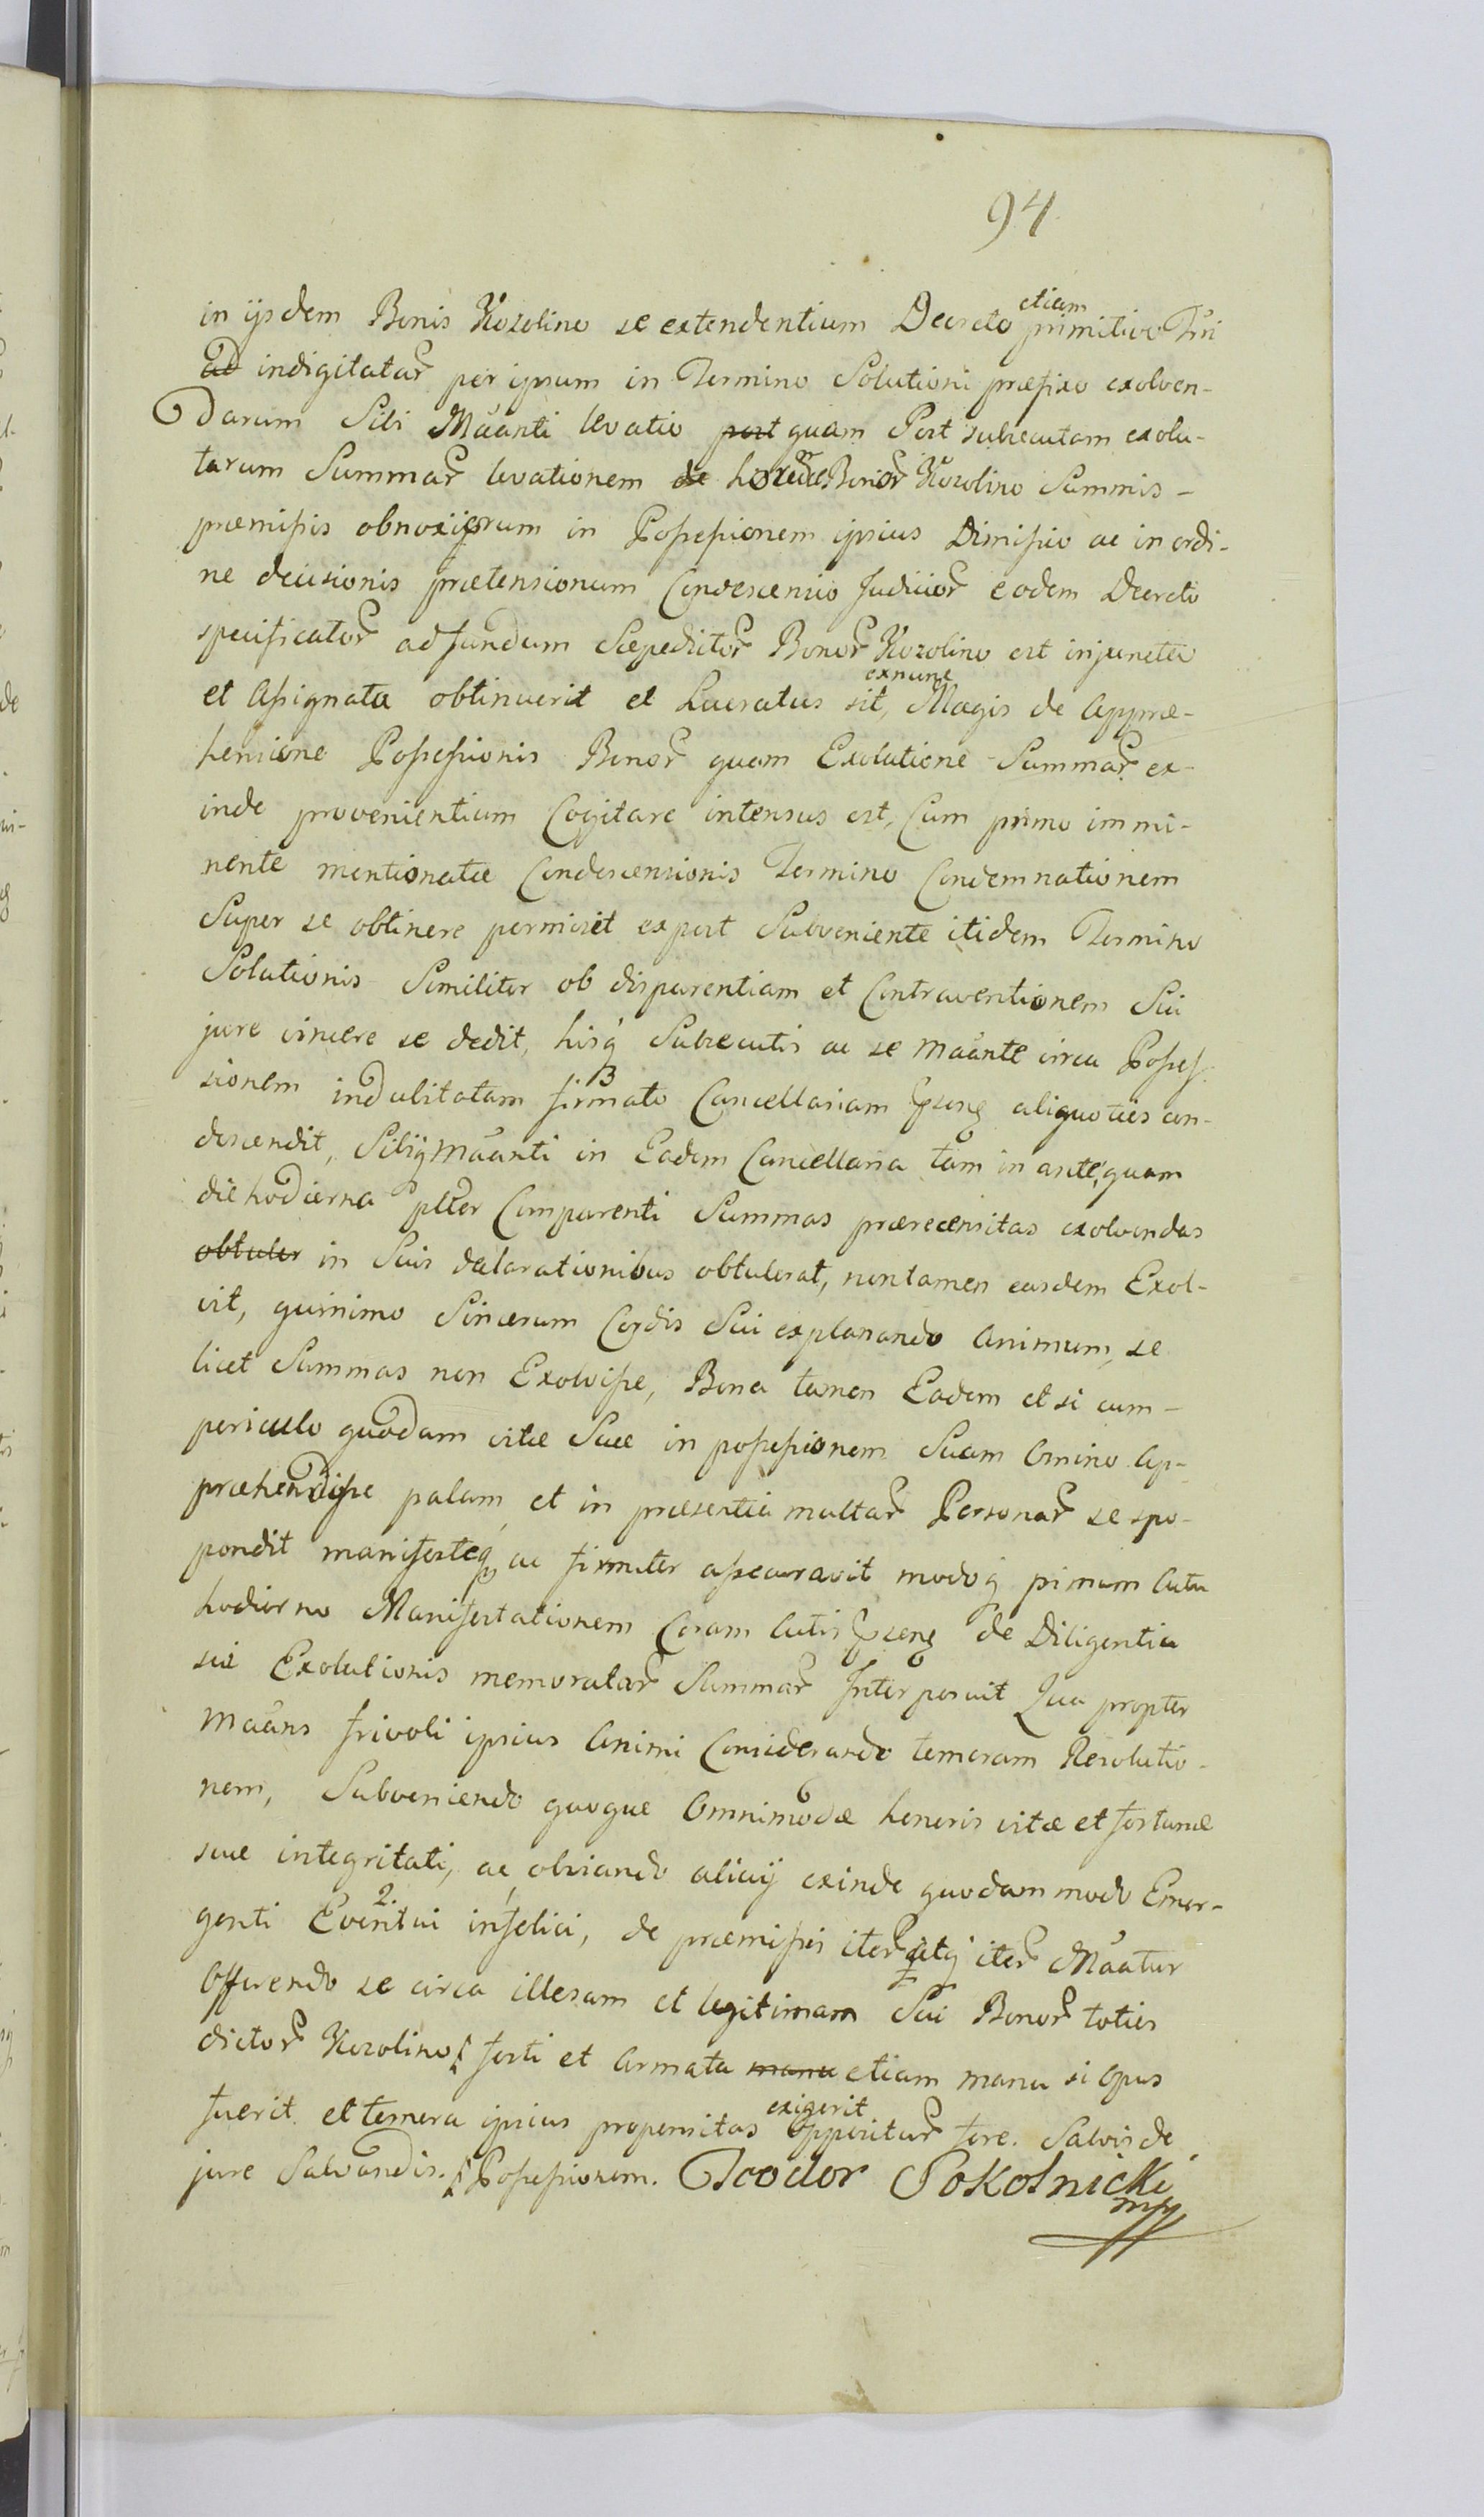 94
in ijsdem Bonis Kozolino se extendentium Decreto etiam primitivo Tri
ad indigitatar per ipsum in Termino Solutioni præfixo exolven-
darum Sibi Mãanti levatio post quam Post subsecutam exolu-
tarum Summar levationem de Bonor Kozolino Summis-
præmissis obnoxiorum in Possessionem ipsius Dimissio ac in ordi-
ne decisionis prætensionum Condescensio Judicior eodem Decreto
specificator ad fundum Sæpedictor Bonor Kozolino est injuncta
et assignata obtinuerit et Lucratus exnunc sit, Magis de Appræ-
hensione Possessionis Bonor quam Exolutione Summar ex-
inde provenientium Cogitare intensus est, Cum primo immi-
nente mentionatæ Condescensionis Termino Condemnationem
Super se obtinere permisit expost Subveniente itidem Termino
Solutionis Similiter ob disparentiam et Contraventionem Sui
jure vincere se dedit, hisq Subsecutis ac se Mãante circa Posses-
sionem indubitatam firmato Cancellariam aliquoties con-
descendit, Sibiq Mãanti in Eadem Cancellaria tam in ante, quam
die hodierna plter Comparenti Summas prærecensitas exolvendas
obtuler in Suis declarationibus obtulerat, non tamen easdem Exol-
vit, quinimo Sincerum Cordis Sui explanando Animum, se
licet Summas non Exolvisse, Bona tamen Eadem et si cum-
periculo quodam vitæ Suæ in possessionem Suam Omino Ap-
præhendisse palam et in præsentia multar Personar se spo-
pondit manifesteq ac firmiter assecuravit modoq primum Actu
hodierno Manifestationem Coram Actis de Diligentia
sui Exolutionis memoratar Summar Interposuit Qua propter
Mãans frivoli ipsius Animi Considerando temeram Resolutio-
nem, Subveniendo quoque Omnimodæ honoris vitæ et fortunæ
suæ integritati, ac obviando alicuij exinde quodammodo Emer-
genti Eventui infelici, de præmissis iter atq iter Mãatur
Offerendo se circa illesam et legitimam Sui Bonor toties
dictor Kozolino forti et Armata manu etiam manu si Opus
fuerit et temera ipsius propensitas exigerit oppositur fore. Salvis de
jure Salvandis. Possessionem. Teodor Sokolnicki
mp